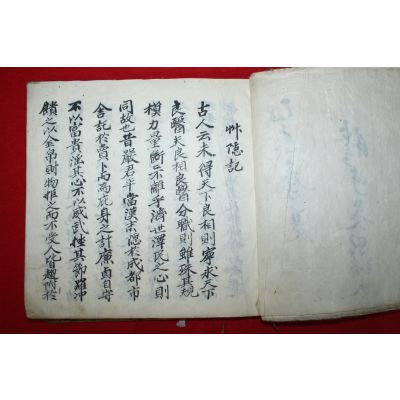 艸隱記
古人云未得天下良相則寧求天下
良醫夫良相良醫分職則雖殊其規
模力量斷不離乎濟世澤民之心則
同故也昔嚴君平當漢末隱於成都市
舍託於賣卜而爲庇身之計廉貞自守
不以富貴淫其心不以威武其節雖
饋之以金帛財物推之而不受人皆趨附於